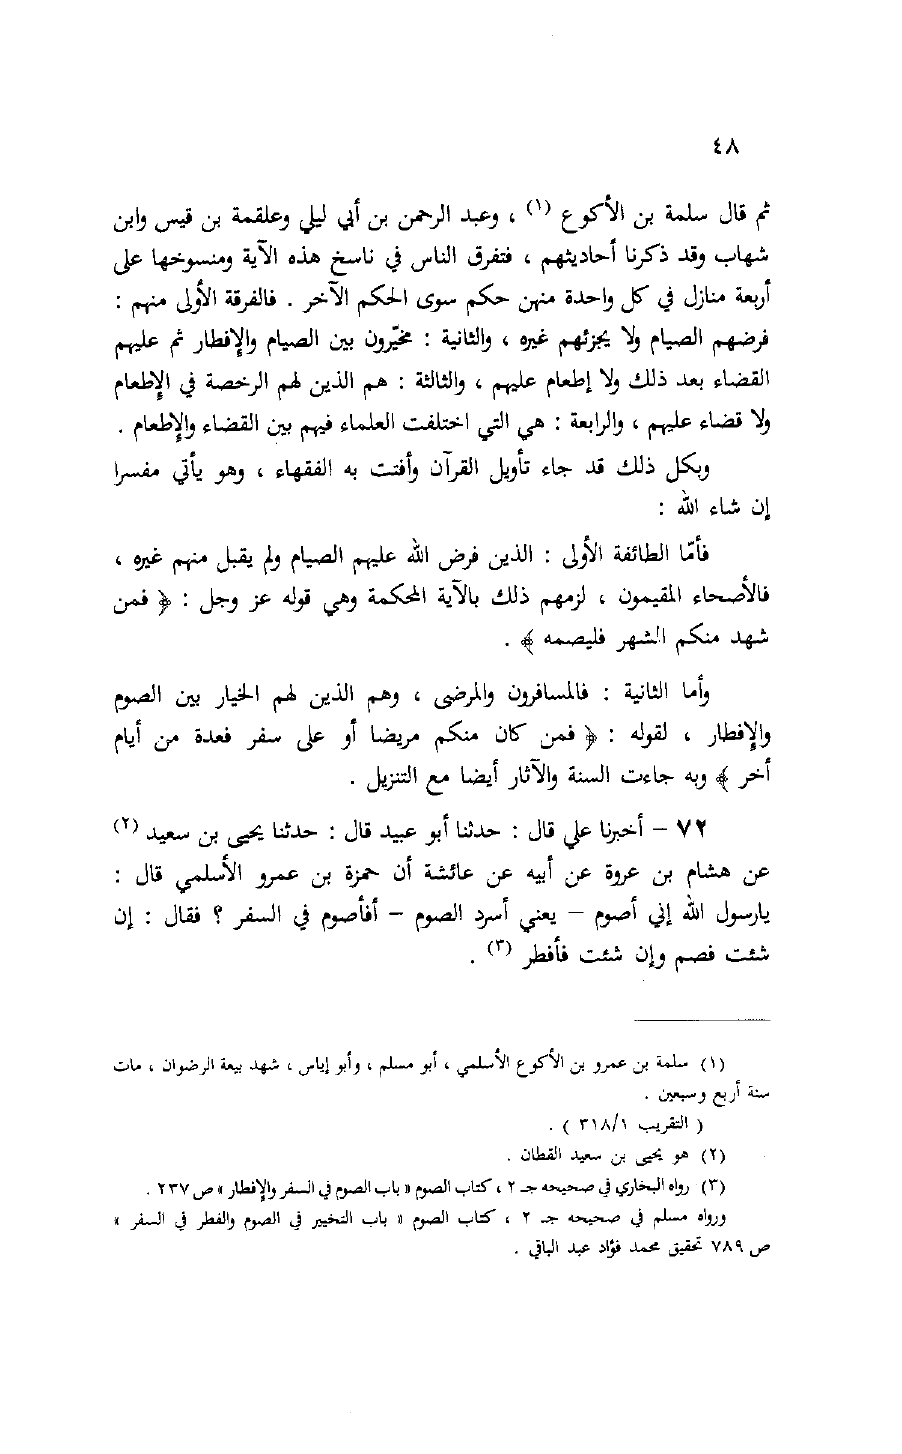 ٤٨
ثم قال سلمة بن الأكوع (١) ، وعبد الرحمن بن أبي ليلي وعلقمة بن قيس وابن
شهاب وقد ذكرنا أحاديثهم ، فتفرق الناس في ناسخ هذه الآية ومنسوخها على
أربعة منازل في كل واحدة منهن حكم سوى الحكم الآخر . فالفرقة الأولى منهم :
فرضهم الصيام ولا يجزئهم غيره ، والثانية : مخيّرون بين الصيام والإفطار ثم عليهم
القضاء بعد ذلك ولا إطعام عليهم ، والثالثة : هم الذين لهم الرخصة في الإطعام
ولا قضاء عليهم ، والرابعة : هي التي اختلفت العلماء فيهم بين القضاء والإطعام .
وبكل ذلك قد جاء تأويل القرآن وأفتت به الفقهاء ، وهو يأتي مفسرا
إن شاء الله :
فأمّا الطائفة الأولى : الذين فرض الله عليهم الصيام ولم يقبل منهم غيره ،
فالأصحاء المقيمون ، لزمهم ذلك بالآية المحكمة وهي قوله عز وجل : ﴿ فمن
شهد منكم الشهر فليصمه ﴾ .
وأما الثانية : فالمسافرون والمرضى ، وهم الذين لهم الخيار بين الصوم
والإفطار ، لقوله : ﴿ فمن كان منكم مريضا أو على سفر فعدة من أيام
أخر ﴾ وبه جاءت السنة والآثار أيضا مع التنزيل .
٧٢ – أخبرنا علي قال : حدثنا أبو عبيد قال : حدثنا يحيى بن سعيد (٢)
عن هشام بن عروة عن أبيه عن عائشة أن حمزة بن عمرو الأسلمي قال :
يارسول الله إني أصوم – يعني أسرد الصوم – أفأصوم في السفر ؟ فقال : إن
شئت فصم وإن شئت فأفطر (٣) .
(١) سلمة بن عمرو بن الأكوع الأسلمي ، أبو مسلم ، وأبو إياس ، شهد بيعة الرضوان ، مات
سنة أربع وسبعين .
( التقريب ٣١٨/١ ) .
(٢) هو يحيى بن سعيد القطان .
(٣) رواه البخاري في صحيحه جـ ٢ ، كتاب الصوم « باب الصوم في السفر والإفطار » ص ٢٣٧ .
ورواه مسلم في صحيحه جـ ٢ ، كتاب الصوم « باب التخيير في الصوم والفطر في السفر »
ص ٧٨٩ تحقيق محمد فؤاد عبد الباقي .